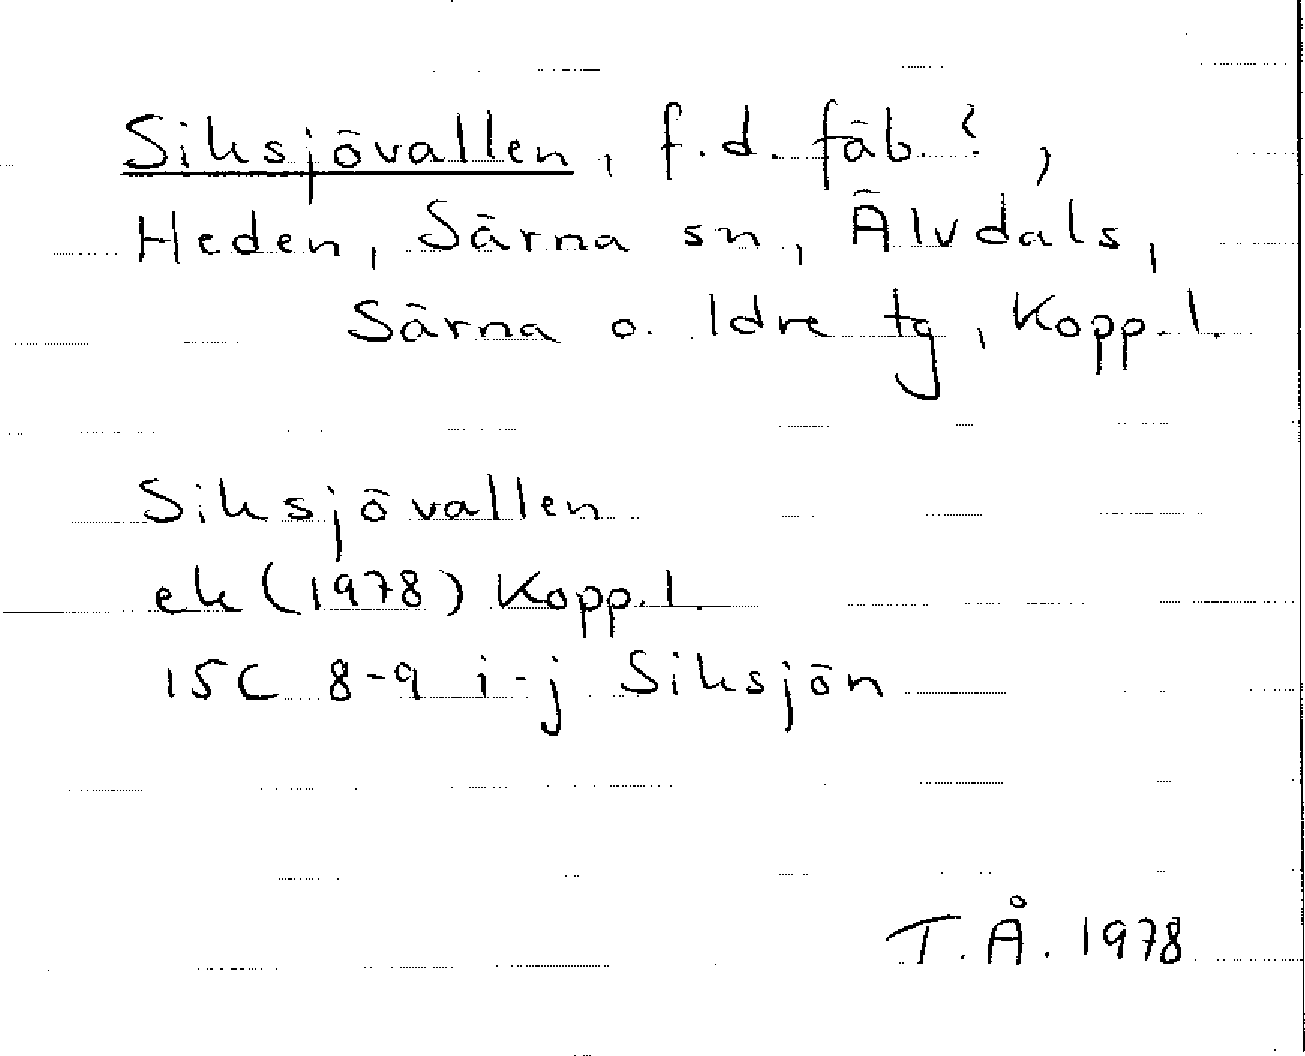 Siksjövallen, f.d. fäb.?,
Heden, Särna sn, Älvdals,
Särna o. Idre tg, Kopp.l.
Siksjövallen
ek (1978) Kopp.l.
15C 8-9 i-j Siksjön
T.Å. 1978